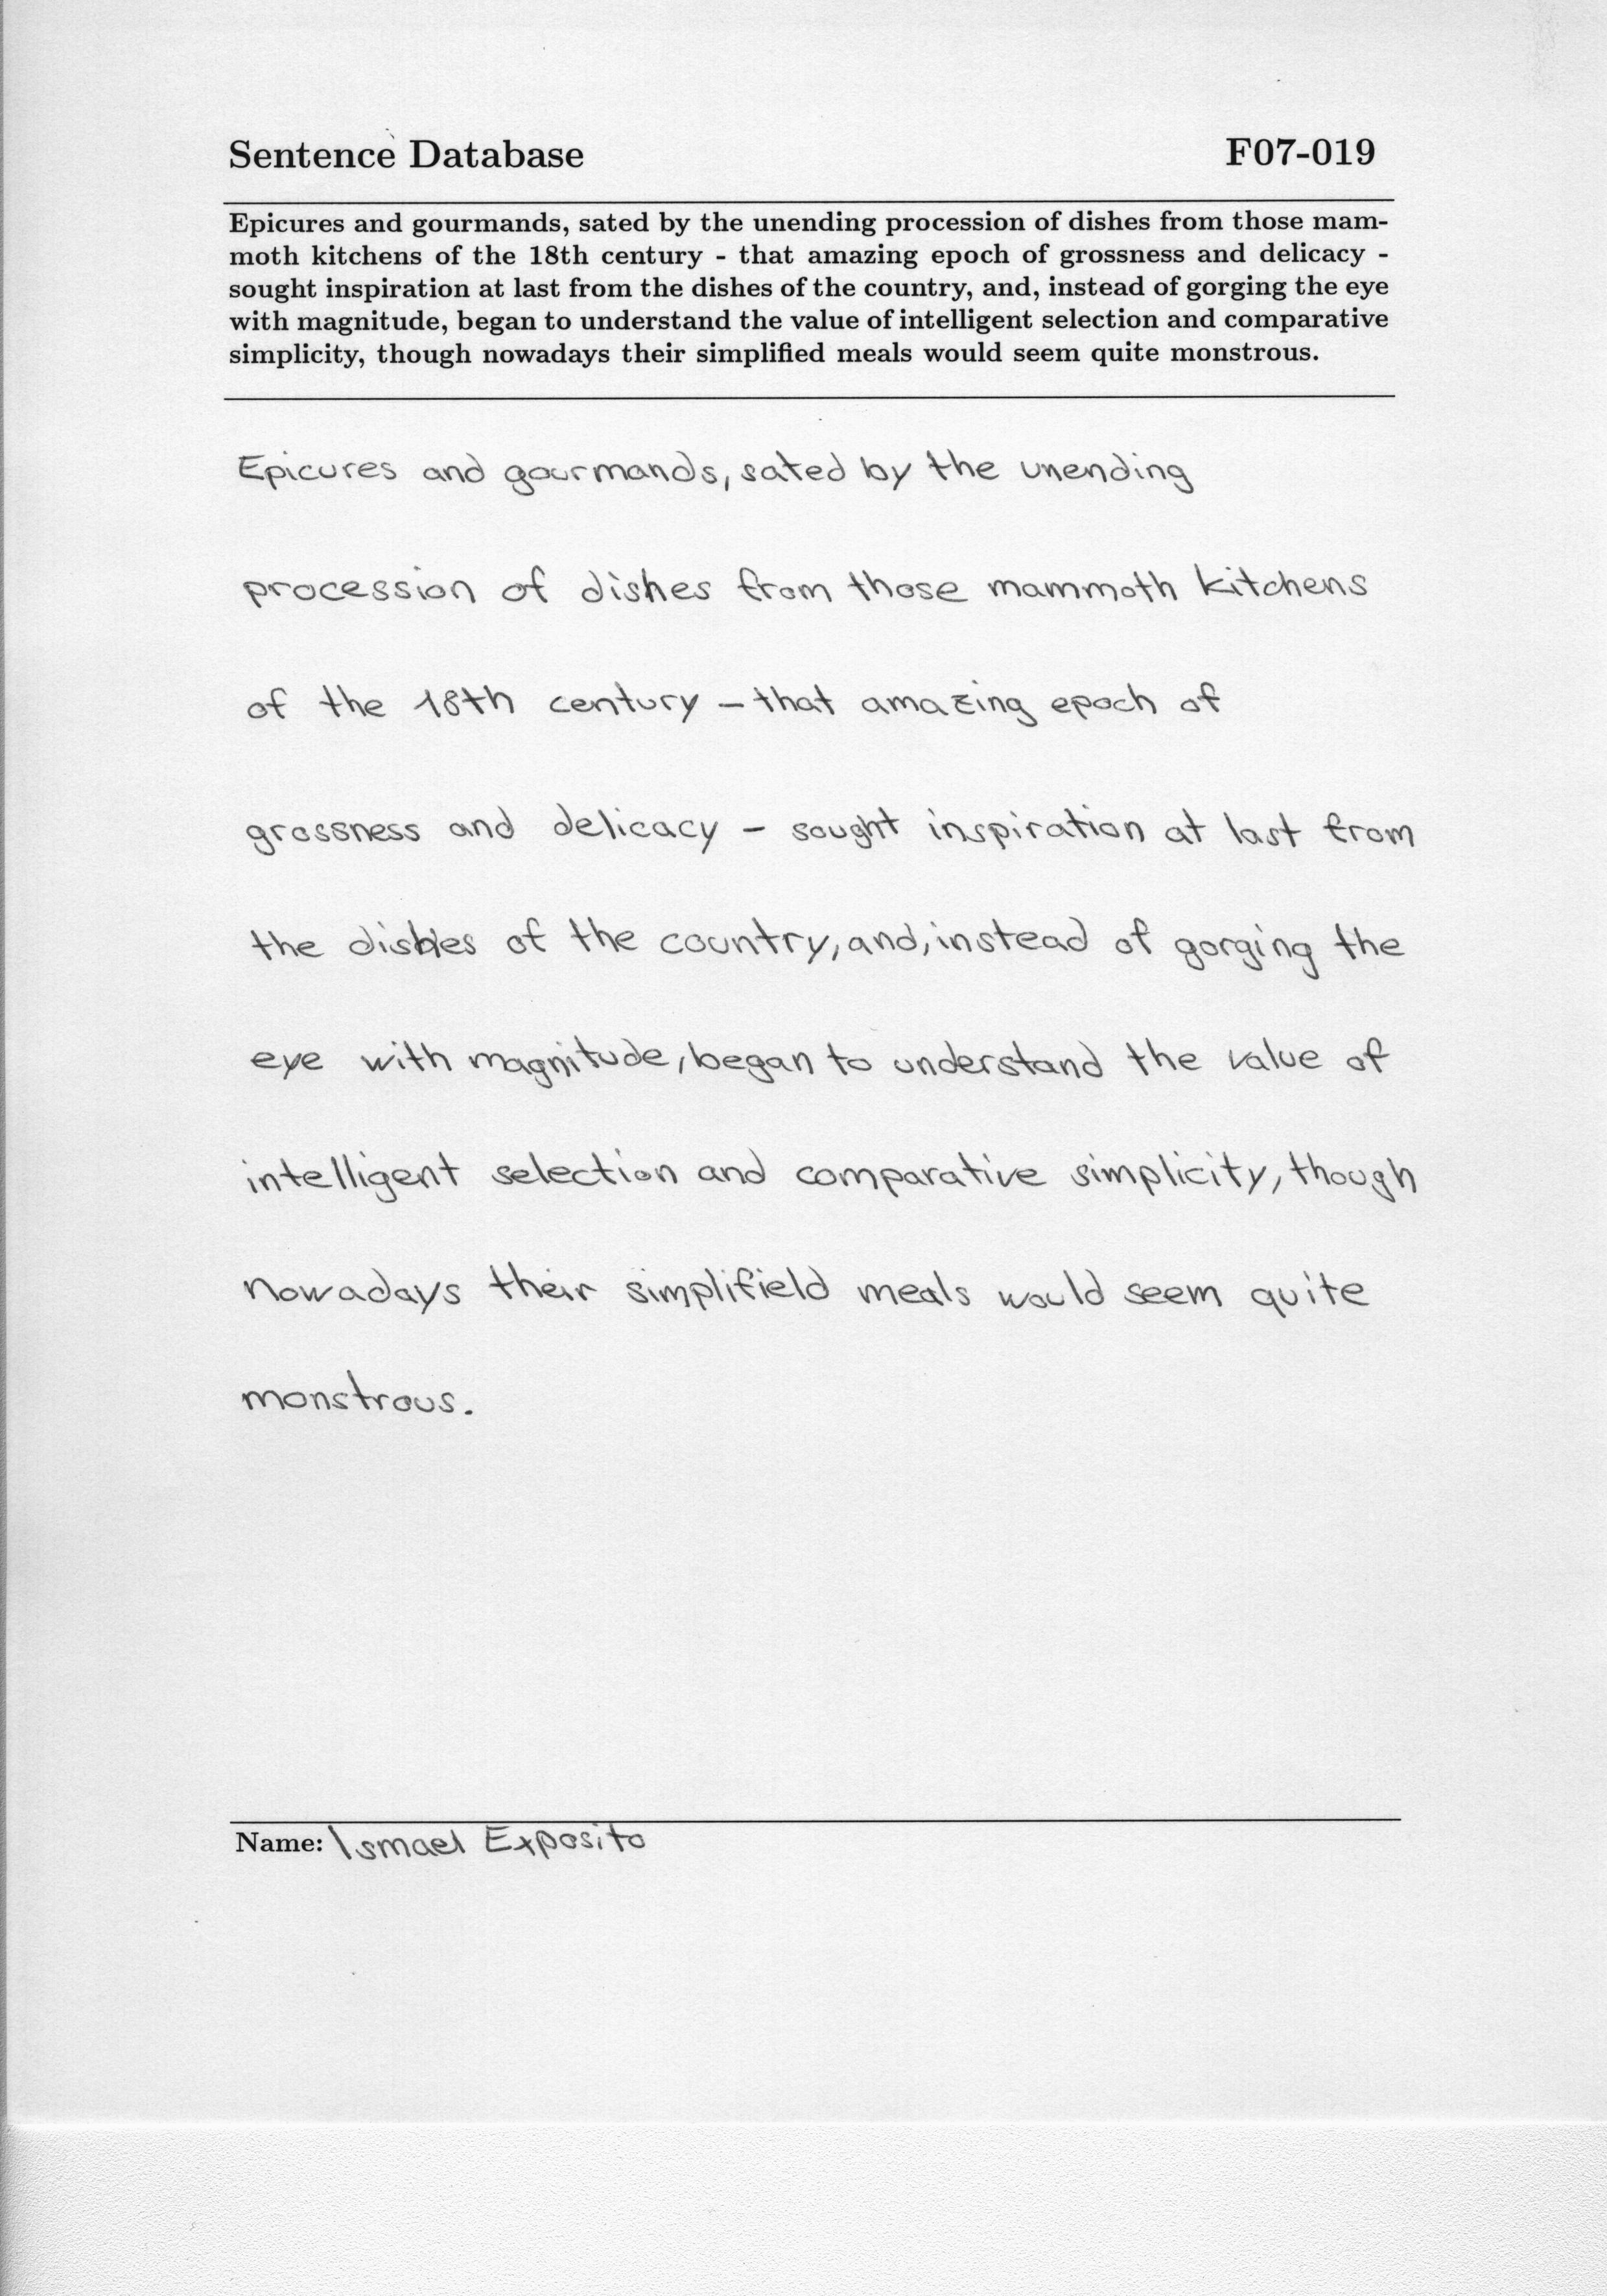 Sentence Database F07-019
Epicures and gourmands, sated by the unending procession of dishes from those mam-
moth kitchens of the 18th century - that amazing epoch of grossness and delicacy -
sought inspiration at last from the dishes of the country, and, instead of gorging the eye
with magnitude, began to understand the value of intelligent selection and comparative
simplicity, though nowadays their simplified meals would seem quite monstrous.
Epicures and gourmands, sated by the unending
procession of dishes from those mammoth kitchens
of the 18th century - that amazing epoch of
grossness and delicacy - sought inspiration at last from
the dishes of the country, and, instead of gorging the
eye with magnitude, began to understand the value of
intelligent selection and comparative simplicity, though
nowadays their simplifield meals would seem quite
monstrous.
Name: Ismael Exposito